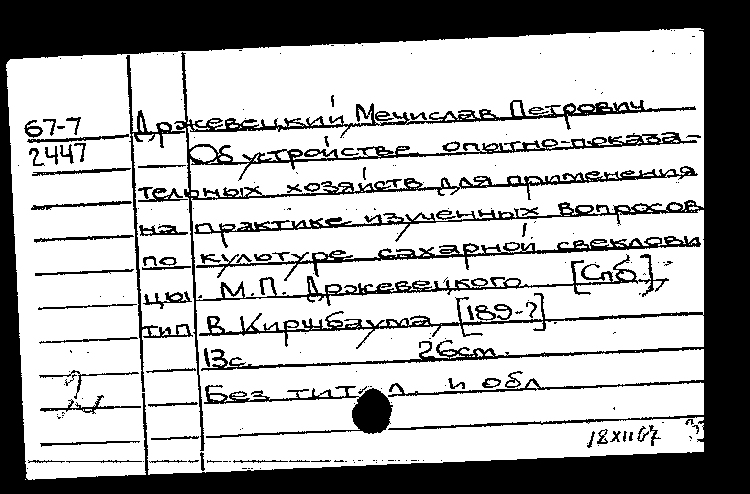 67-7
2447
Држевецкий, Мечислав Петрович.
Об устройстве опытно-показа-
тельных хозяйств для применения
на практике изученных вопросов
по культуре сахарной свеклови
цы. М.П. Држевецкого. [Спб.],
тип. В. Киршбаума, [189-?].
13с. 26см.
Без тит. л. и обл.
2
18 XII 67